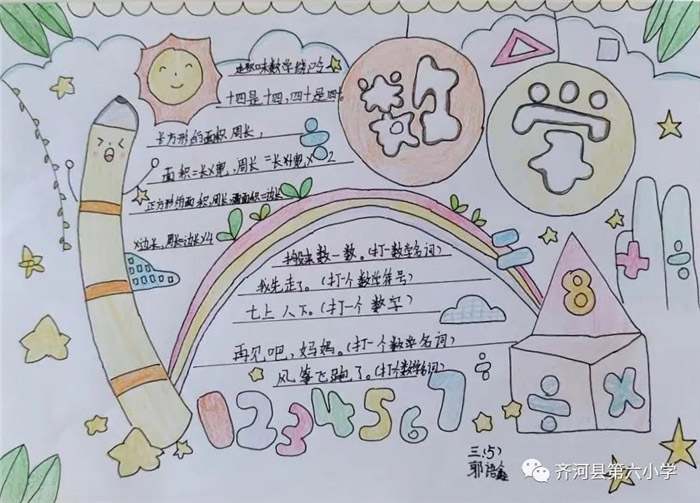 数学
趣味数学绕口令
十四是十四,四十是四十
长方形的面积,周长,
面积=长×宽,周长=长+宽×2
正方形的面积,周长,面积=边长
×边长,周长=边长×4
数一数。(打一数学名词)
我先走了。(打一个数学符号)
七上八下。(打一个数字)
再见吧,妈妈。(打一个数学名词)
风筝飞跑了。(打个数学名词)
8
÷ ×
01234567÷
三(5)
郭
齐河县第六小学